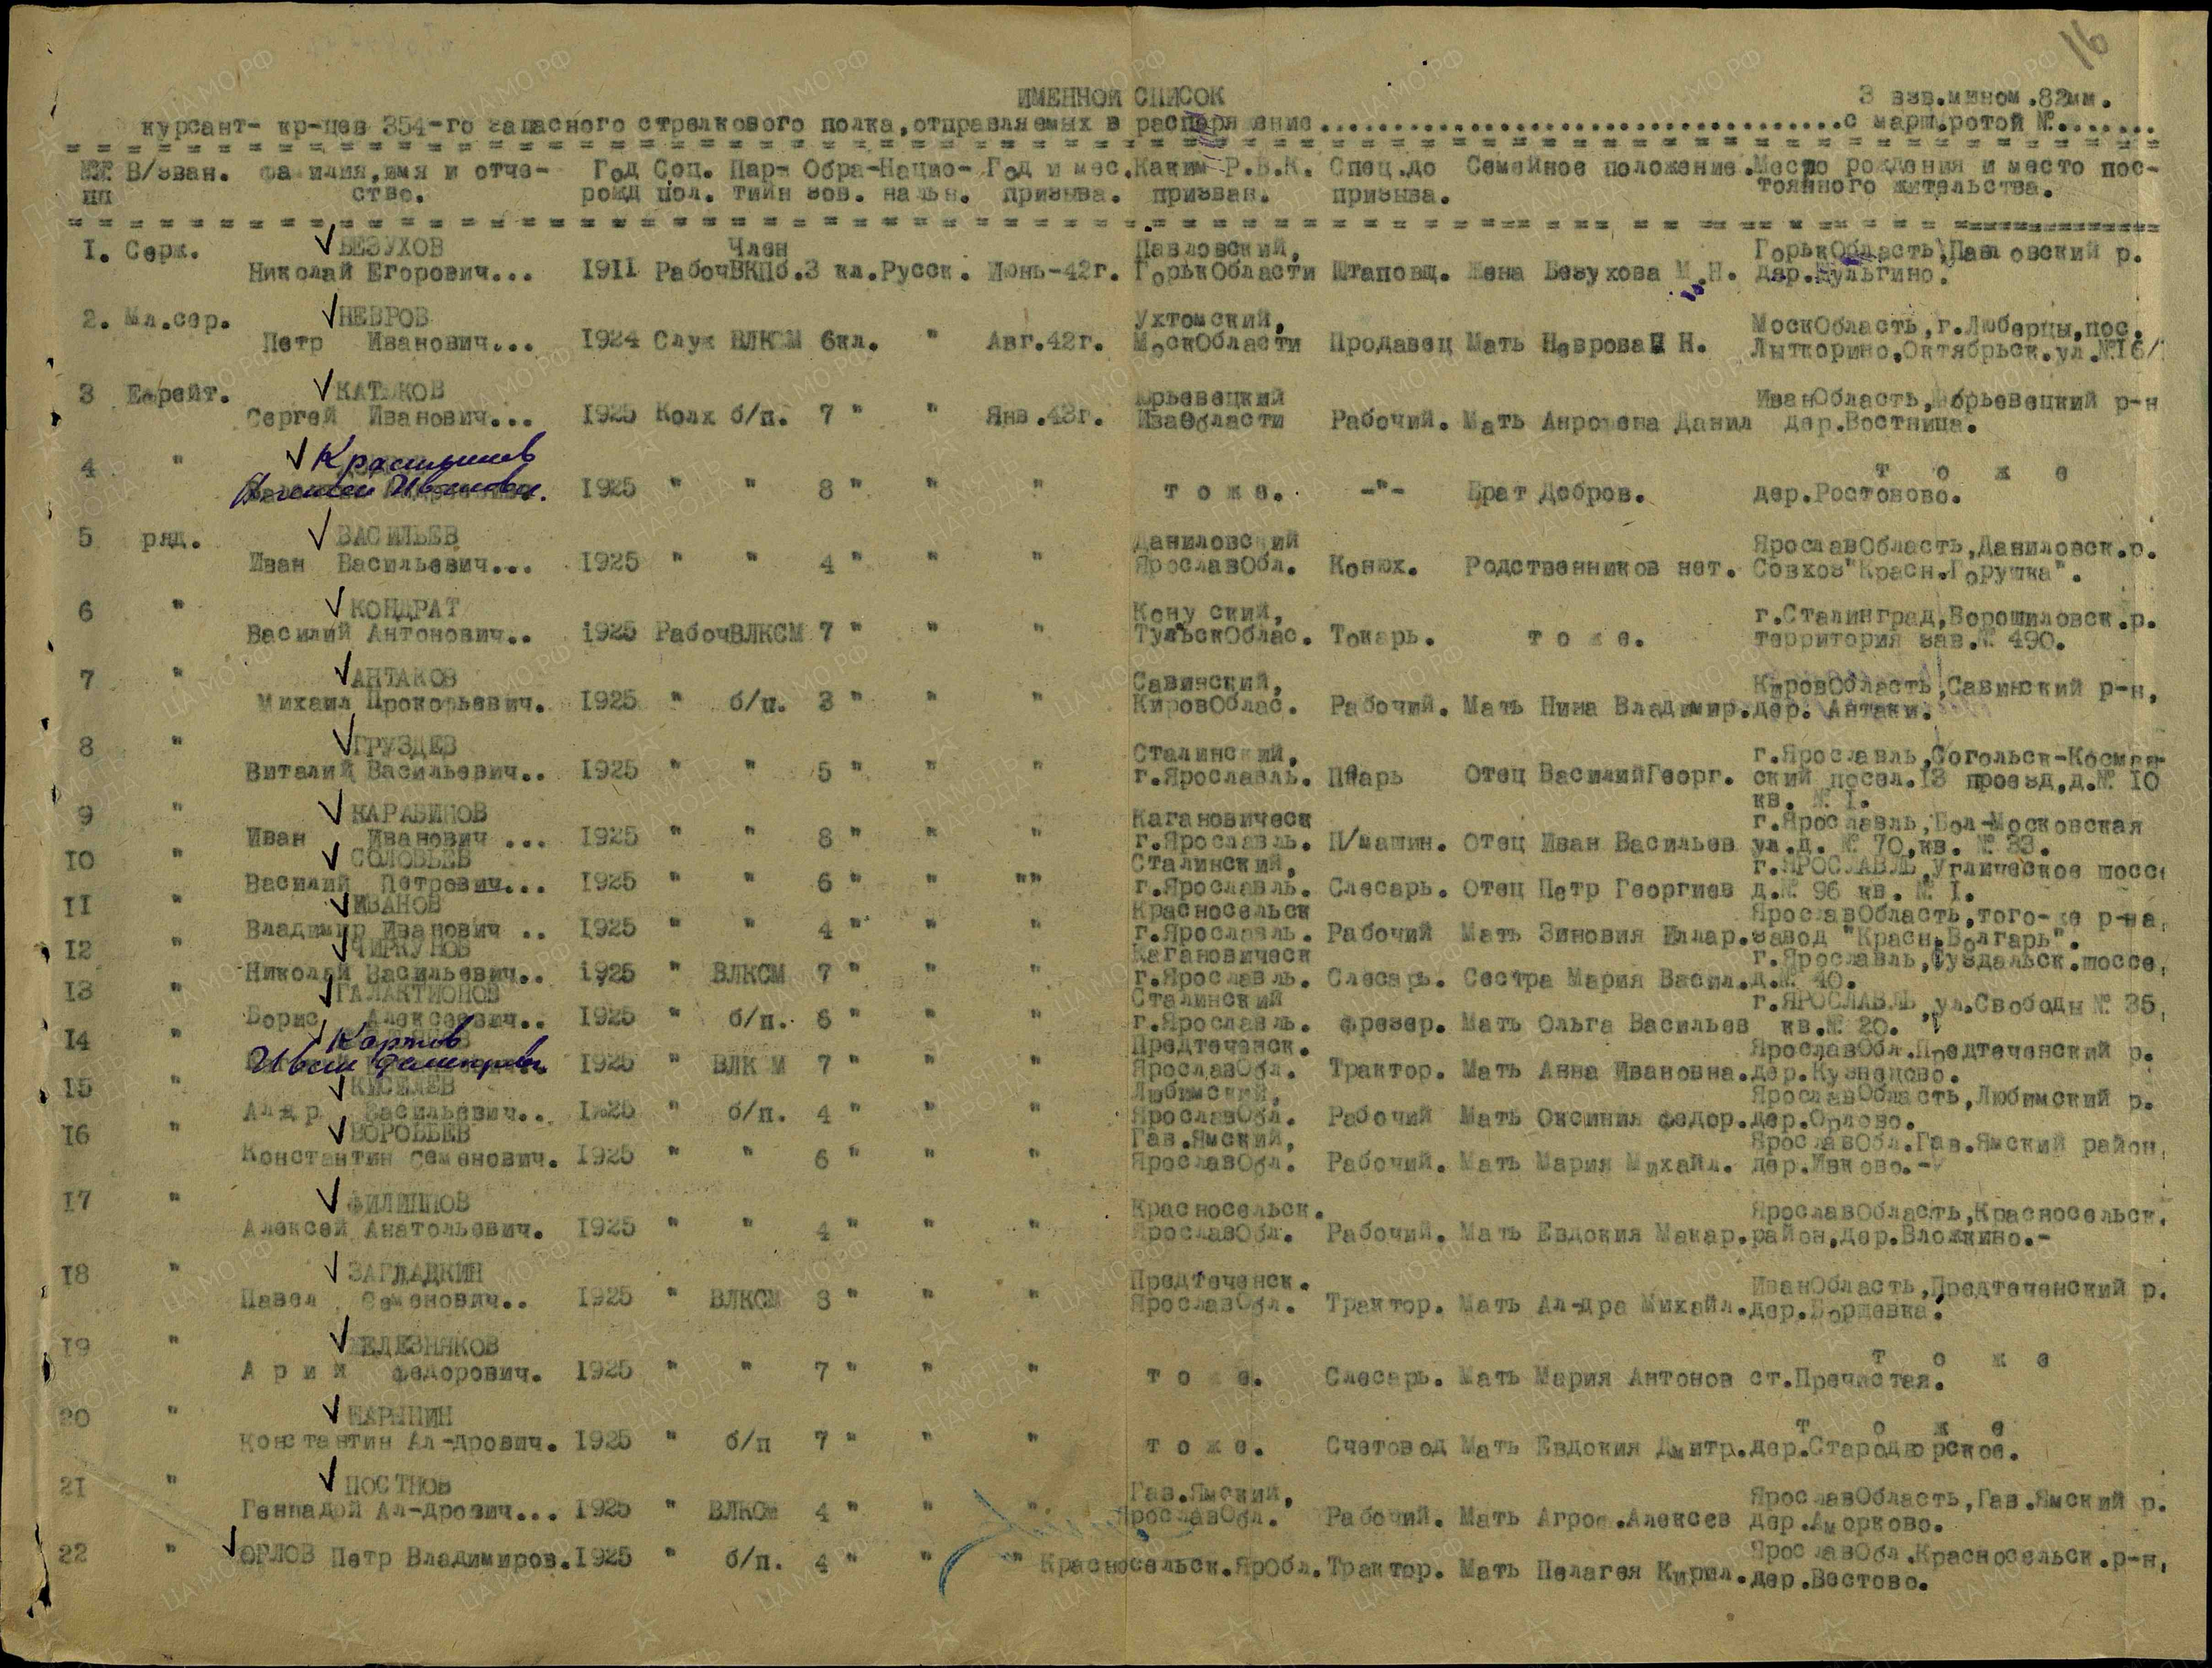 16
ИМЕННОЙ СПИСОК
3 взв.мином.82мм.
курсант- кр-цев 354-го запасного стрелкового полка,отправляемых в распоряжение.................................с марш.ротой №.......
№№ В/зван. фамилия,имя и отче- Год Соц. Пар- Обра-Нацио- Год и мес.Каким Р.В.К. Спец.до Семейное положение.Место рождения и место пос-
пп ство. рожд пол. тийн зов. нальн. призыва. призван. призыва. тоянного жительства.
I. Серж. БЕЗУХОВ Член Павловский, ГорькОбласть,Павловский р.
Николай Егорович... I9II РабочВКПб.3 кл.Русск. Июнь-42г. ГорькОбласти Штаповщ. Жена Безухова М.Н. дер.Булыгино.
2. Мл.сер. НЕВРОВ Ухтомский, МоскОбласть,г.Люберцы,пос.
Петр Иванович... I924 Служ ВЛКСМ 6кл. " Авг.42г. МоскОбласти Продавец Мать Неврова Н. Лыткорино,Октябрьск.ул.№I6/
3 Ефрейт. КАТЮКОВ Юрьевецкий ИванОбласть,Юрьевецкий р-н
Сергей Иванович... I925 Колх б/п. 7 " " Янв.43г. ИваОбласти Рабочий. Мать Анрофена Данил дер.Востница.
4 " т о ж е
I925 " " 8 " " " т о ж е. -"- Брат Добров. дер.Ростовово.
5 ряд. ВАСИЛЬЕВ Даниловский ЯрославОбласть,Даниловск.р.
Иван Васильевич... I925 " " 4 " " " ЯрославОбл. Конюх. Родственников нет. Совхоз"Красн.Горушка".
6 " КОНДРАТ ский, г.Сталинград,Ворошиловск.р.
Василий Антонович.. i925 РабочВЛКСМ 7 " " " ТульскОблас. Токарь. т о ж е. территория зав.№ 490.
7 " АНТАКОВ Савинский, КировОбласть,Савинский р-н,
Михаил Прокофьевич. I925 " б/п. 3 " " " КировОблас. Рабочий. Мать Нина Владимир.дер. Антаки.
8 " ГРУЗДЕВ Сталинский, г.Ярославль,Согольск-Космав-
Виталий Васильевич.. I925 " " 5 " " " г.Ярославль. Отец ВасилийГеорг. ский посел.I3 проезд,д.№ I0
кв. № I.
9 " КАРАБИНОВ Кагановическ г.Ярославль,Бол-Московская
Иван Иванович ... I925 " " 8 " " " г.Ярославль. П/машин. Отец Иван Васильев ул.д. № 70,кв. № 33.
I0 " СОЛОВЬЕВ Сталинский, г.ЯРОСЛАВЛЬ,Углическое шоссе
Василий Петрович... I925 " " 6 " " "" г.Ярославль. Слесарь. Отец Петр Георгиев д.№ 96 кв. № I.
II " ИВАНОВ Красносельск ЯрославОбласть,того-же р-на,
Владимир Иванович .. I925 " " 4 " " " г.Ярославль. Рабочий Мать Зиновия Иллар.завод "Красн.Волгарь".
I2 " ЧИРКУНОВ Кагановическ г.Ярославль,Суздальск.шоссе,
Николай Васильевич.. i925 " ВЛКСМ 7 " " " г.Ярославль. Слесарь. Сестра Мария Васил.д.№ 40.
I3 " ГАЛАКТИОНОВ Сталинский г.ЯРОСЛАВЛЬ,ул.Свободы № 35,
Борис Алексеевич.. I925 " б/п. 6 " " " г.Ярославль. фрезер. Мать Ольга Васильев кв.№ 20.
I4 " Предтеченск. ЯрославОбл.Предтеченский р.
Иван I925 " ВЛК М 7 " " " ЯрославОбл. Трактор. Мать Анна Ивановна.дер.Кузнецово.
I5 " КИСЕЛЕВ Любимский, ЯрославОбласть,Любимский р.
Ал-др Васильевич.. I925 " б/п. 4 " " " ЯрославОбл. Рабочий Мать Оксиния федор.дер.Орлово.
I6 " ВОРОБЬЕВ Гав.Ямский, ЯрославОбл.Гав.Ямский район,
Константин Семенович. I925 " " 6 " " " ЯрославОбл. Рабочий. Мать Мария Михайл. дер.Ивково.-
I7 " ФИЛИППОВ Красносельск. ЯрославОбласть,Красносельск.
Алексей Анатольевич. I925 " " 4 " " " ЯрославОбл. Рабочий. Мать Евдокия Макар.район,дер.Вложкино.-
I8 " ЗАГЛАДКИН Предтеченск. ИванОбласть,Предтеченский р.
Павел Семенович.. I925 " ВЛКСМ 8 " " " ЯрославОбл. Трактор. Мать Ал-дра Михайл.дер.Борщевка.
I9 " ЖЕЛЕЗНЯКОВ т о ж е
А р и й федорович. I925 " " 7 " " " т о ж е. Слесарь. Мать Мария Антонов ст.Пречистая.
20 " ШАРЫНИН т о ж е
Константин Ал-дрович. I925 " б/п 7 " " " т о ж е. Счетовод Мать Евдокия Дмитр.дер.Стародворское.
2I " ПОСТНОВ Гав.Ямский, ЯрославОбласть,Гав.Ямский р.
Геннадой Ал-дрович... I925 " ВЛКСМ 4 " " " ЯрославОбл. Рабочий. Мать Агроф.Алексев дер.Аморково.
22 " ОРЛОВ Петр Владимиров.I925 " б/п. 4 " " " Красносельск.ЯрОбл.Трактор. Мать Пелагея Кирил. ЯрославОбл.Красносельск.р-н,
дер.Вестово.